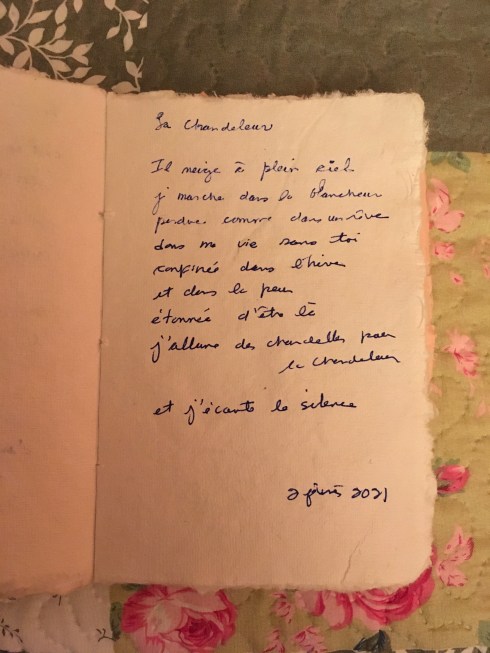 La Chandeleur
Il neige à plein ciel
je marche dans la blancheur
perdue comme dans un rêve
dans ma vie sans toi
confinée dans l'hiver
et dans la peur
étonnée d'être là
j'allume des chandelles pour
la Chandeleur
et j'écoute le silence
2 février 2021